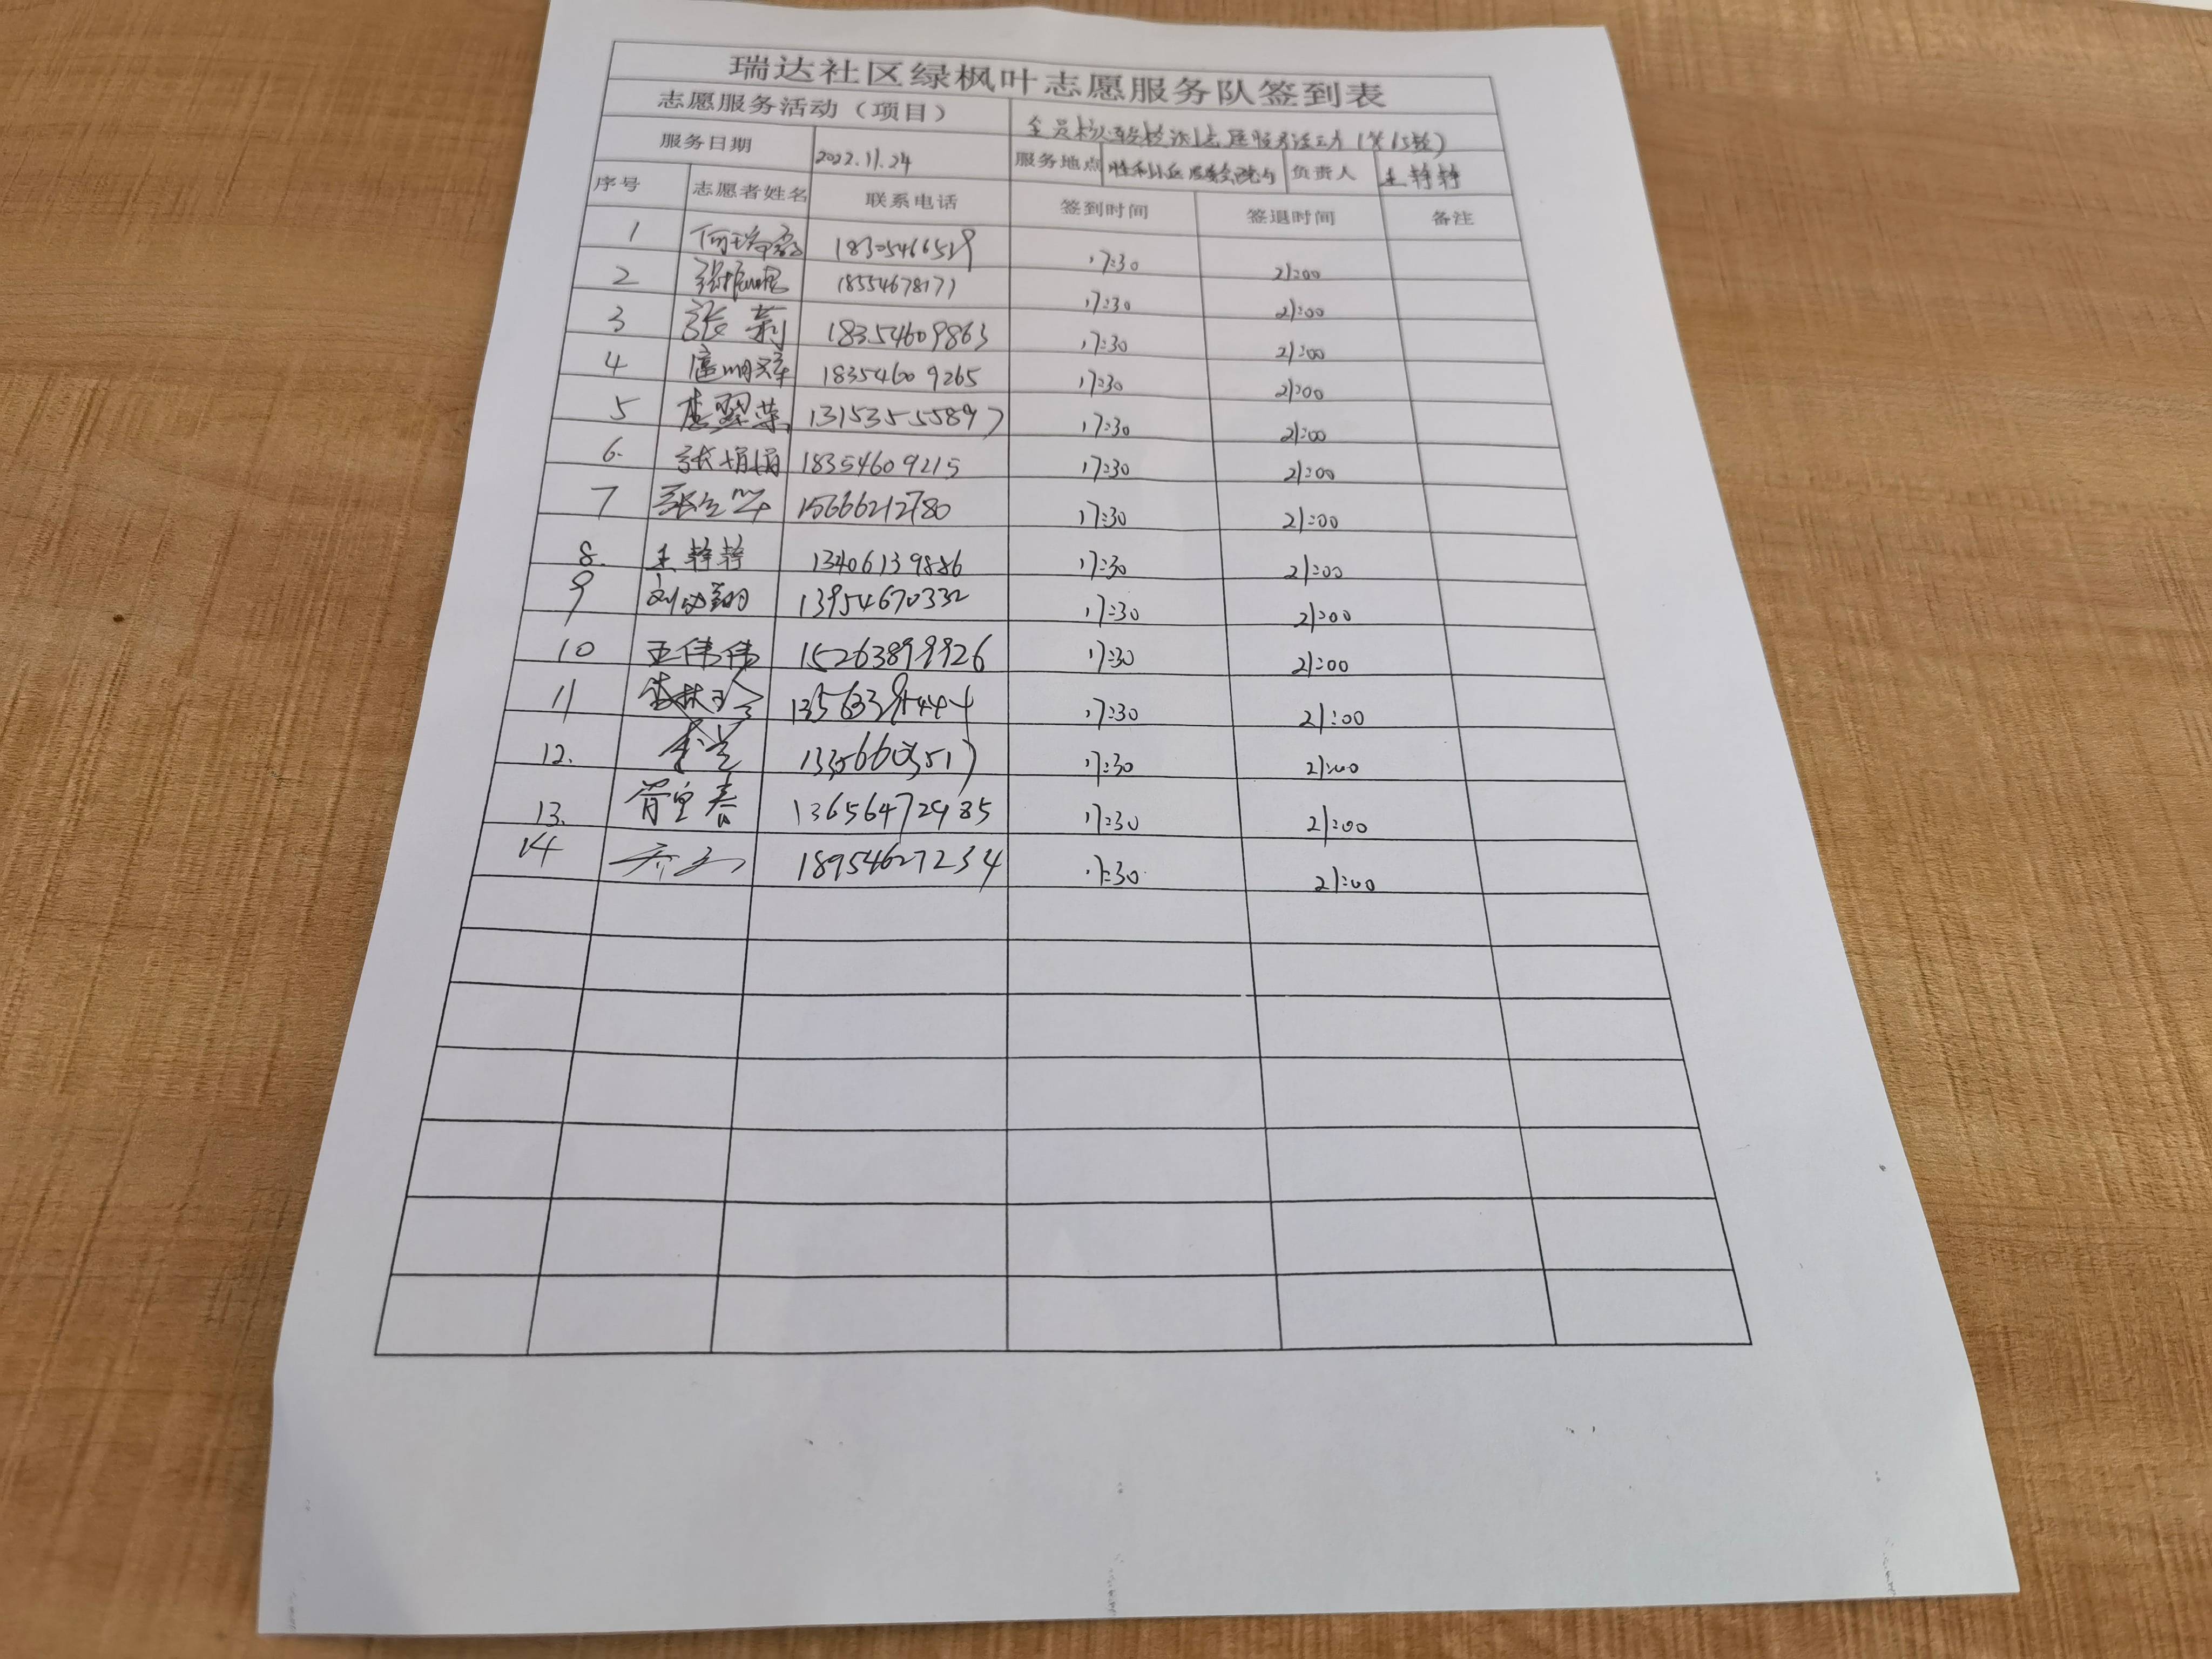 瑞达社区绿枫叶志愿服务队签到表
志愿服务活动（项目） 全员核酸检测志愿服务活动（第15轮）
服务日期 2022.11.24 服务地点 负责人 王静静
序号 志愿者姓名 联系电话 签到时间 签退时间 备注
1 何瑞霞 18305466519 17:30 21:00
2 18554678171 17:30 21:00
3 张莉 18354609863 17:30 21:00
4 18354609265 17:30 21:00
5 李翠荣 13153555897 17:30 21:00
6. 张娟娟 18354609215 17:30 21:00
7 15666212780 17:30 21:00
8. 王静静 13406139886 17:30 21:00
9 13954670332 17:30 21:00
10 王伟伟 15263899926 17:30 21:00
11 17:30 21:00
12. 17:30 21:00
13. 13656472985 17:30 21:00
14 18954627234 17:30 21:00